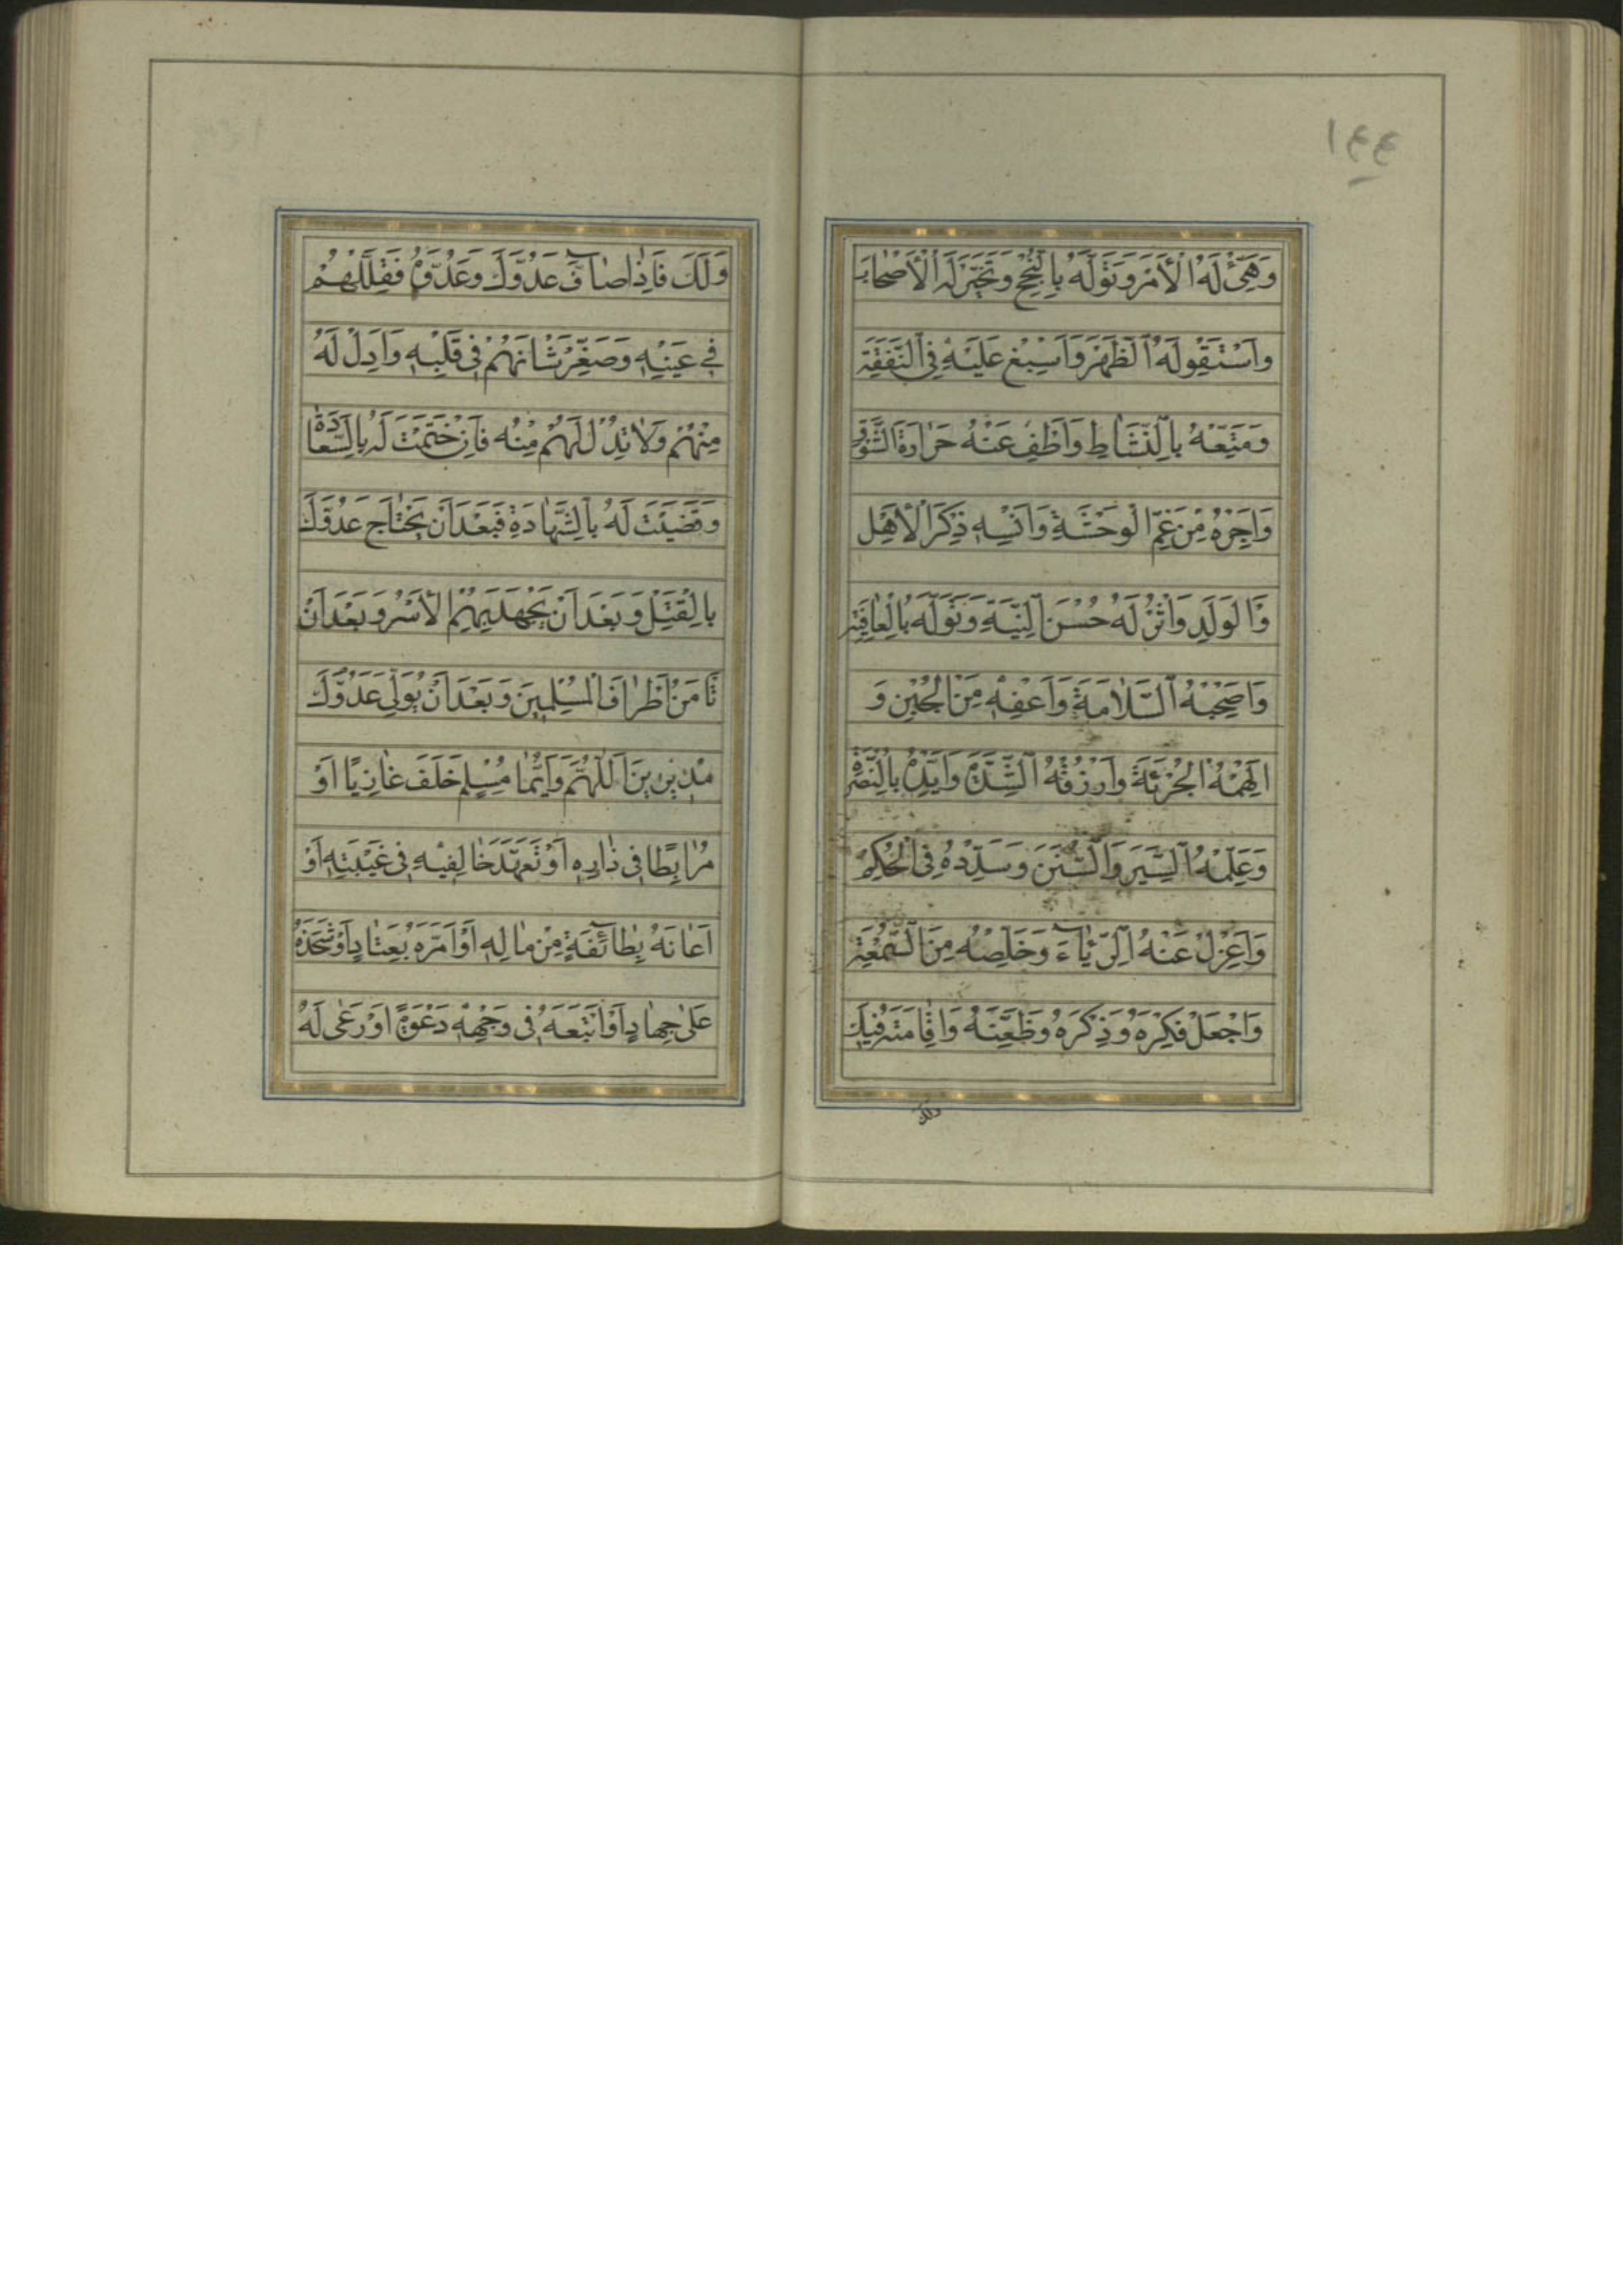 ١٤٤
وَهَيِّئْ لَهُ الْأَمْرَ وَتَوَلَّهُ بِالنُّجْحِ وَتَخَيَّرْ لَهُ الْأَصْحَابَ
وَاسْتَقْوِ لَهُ الظَّهْرَ وَاَسْبِغْ عَلَيْهِ فِي النَّفَقَةِ
وَمَتِّعْهُ بِالنَّشَاطِ وَاَطْفِ عَنْهُ حَرَارَةَ الشَّوْقِ
وَاَجِرْهُ مِنْ غَمِّ الْوَحْشَةِ وَاَنْسِهِ ذِكْرَ الْأَهْلِ
وَالْوَلَدِ وَاْثُرْ لَهُ حُسْنَ النِّيَّةِ وَتَوَلَّهُ بِالْعَافِيَةِ
وَاَصْحِبْهُ السَّلَامَةَ وَاَعْفِهِ مِنَ الْجُبْنِ وَ
اَلْهِمْهُ الْجُرْئَةَ وَارْزُقْهُ الشِّدَّةَ وَاَيِّدْهُ بِالنُّصْرَةِ
وَعَلِّمْهُ السِّيَرَ وَالسُّنَنَ وَسَدِّدْهُ فِي الْحُكْمِ
وَاعْزِلْ عَنْهُ الرِّيَاءَ وَخَلِّصْهُ مِنَ السُّمْعَةِ
وَاجْعَلْ فِكْرَهُ وَذِكْرَهُ وَظَعْنَهُ وَاِقَامَتَهُ فِيكَ
ولك
وَلَكَ فَاِذَا صَافَّ عَدُوَّكَ وَعَدُوَّهُ فَقَلِّلْهُمْ
فِي عَيْنِهِ وَصَغِّرْ شَأْنَهُمْ فِي قَلْبِهِ وَاَدِلْ لَهُ
مِنْهُمْ وَلَا تُدِلْ لَهُمْ مِنْهُ فَاِنْ خَتَمْتَ لَهُ بِالسَّعَادَةِ
وَقَضَيْتَ لَهُ بِالشَّهَادَةِ فَبَعْدَ اَنْ يَجْتَاحَ عَدُوَّكَ
بِالْقَتْلِ وَبَعْدَ اَنْ يَجْهَدَ بِهِمُ الْأَسْرُ وَبَعْدَ اَنْ
تَأْمَنَ اَطْرَافُ الْمُسْلِمِينَ وَبَعْدَ اَنْ يُوَلِّيَ عَدُوُّكَ
مُدْبِرِينَ اَللّٰهُمَّ وَاَيُّمَا مُسْلِمٍ خَلَفَ غَازِيًا اَوْ
مُرَابِطًا فِي دَارِهِ اَوْ تَعَهَّدَ خَالِفِيهِ فِي غَيْبَتِهِ اَوْ
اَعَانَهُ بِطَائِفَةٍ مِنْ مَالِهِ اَوْ اَمَدَّهُ بِعِتَادٍ اَوْ شَحَذَهُ
عَلَى جِهَادٍ اَوْ اَتْبَعَهُ فِي وَجْهِهِ دَعْوَةً اَوْ رَعَى لَهُ